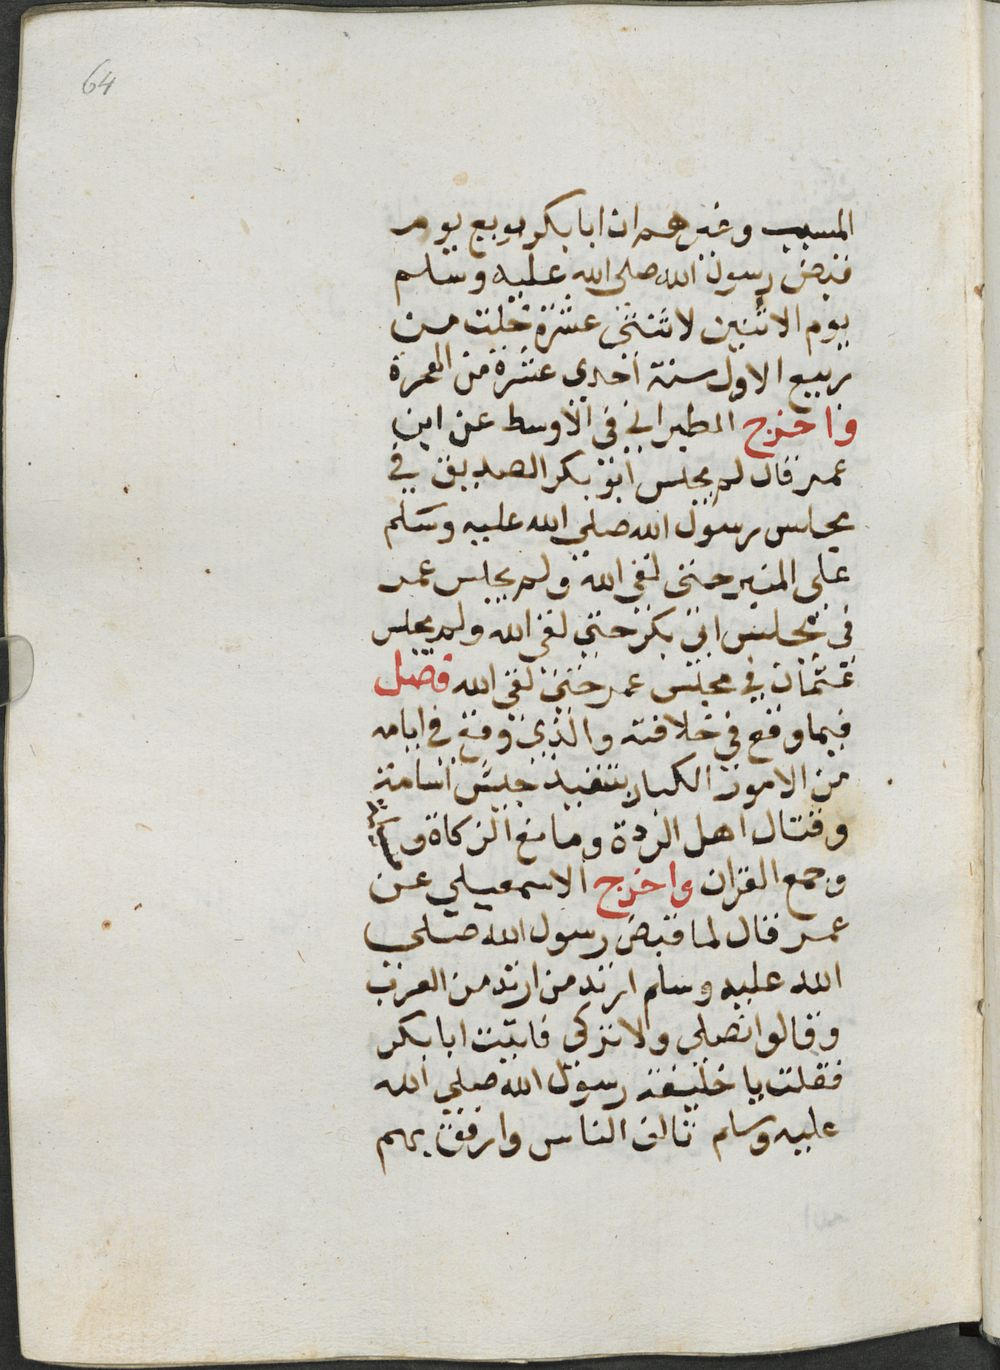 64
المسيب وغيرهم ان ابا بكر بويع يوم
قبض رسول الله صلى الله عليه وسلم
يوم الاثنين لاثنتى عشرة خلت من
ربيع الاول سنة احدي عشرة من الهجرة
واخرج الطبراني في الاوسط عن ابن
عمر قال لم يجلس ابو بكر الصديق في
مجلس رسول الله صلى الله عليه وسلم
على المنبر حتى لقى الله ولم يجلس عمر
فى مجلس ابى بكر حتى لقى الله ولم يجلس
عثمان في مجلس عمر حتى لقى الله فصل
فيما وقع في خلافته والذي وقع في ايامه
من الامور الكبار بتنفيذ جيش اسامة
وقتال اهل الردة ومانع الزكاة و
وجمع القران واخرج الاسمعيلي عن
عمر قال لما قبض رسول الله صلى
الله عليه وسلم ارتد من ارتد من العرب
وقالوا نصلى ولا نزكى فاتيت ابا بكر
فقلت يا خليفة رسول الله صلى الله
عليه وسلم تالف الناس وارفق بهم